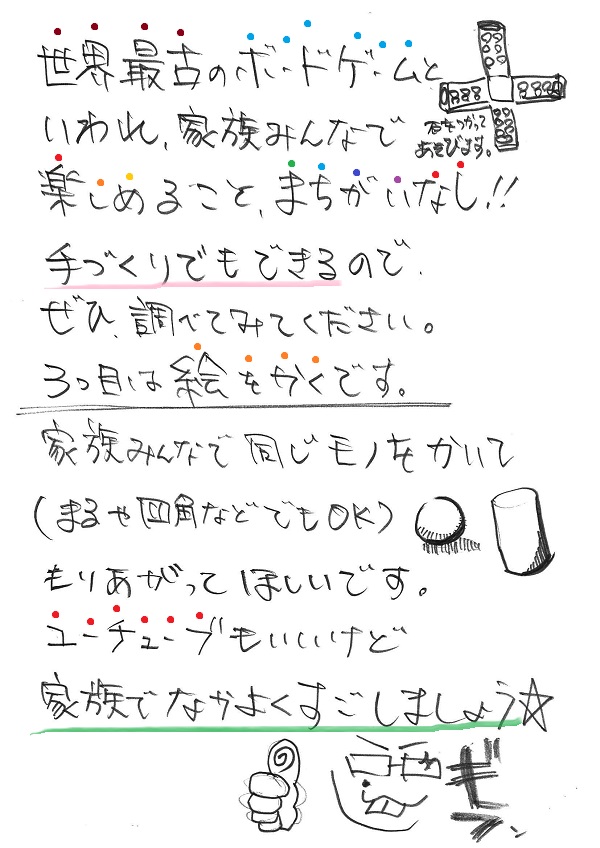 世界最古のボードゲームと
いわれ、家族みんなで
石をつかって
あそびます。
楽しめること、まちがいなし!!
手づくりでもできるので、
ぜひ、調べてみてください。
3つ目は絵をかくです。
家族みんなで同じモノをかいて
(まるや四角などでもOK)
もりあがってほしいです。
ユーチューブもいいけど
家族でなかよくすごしましょう☆